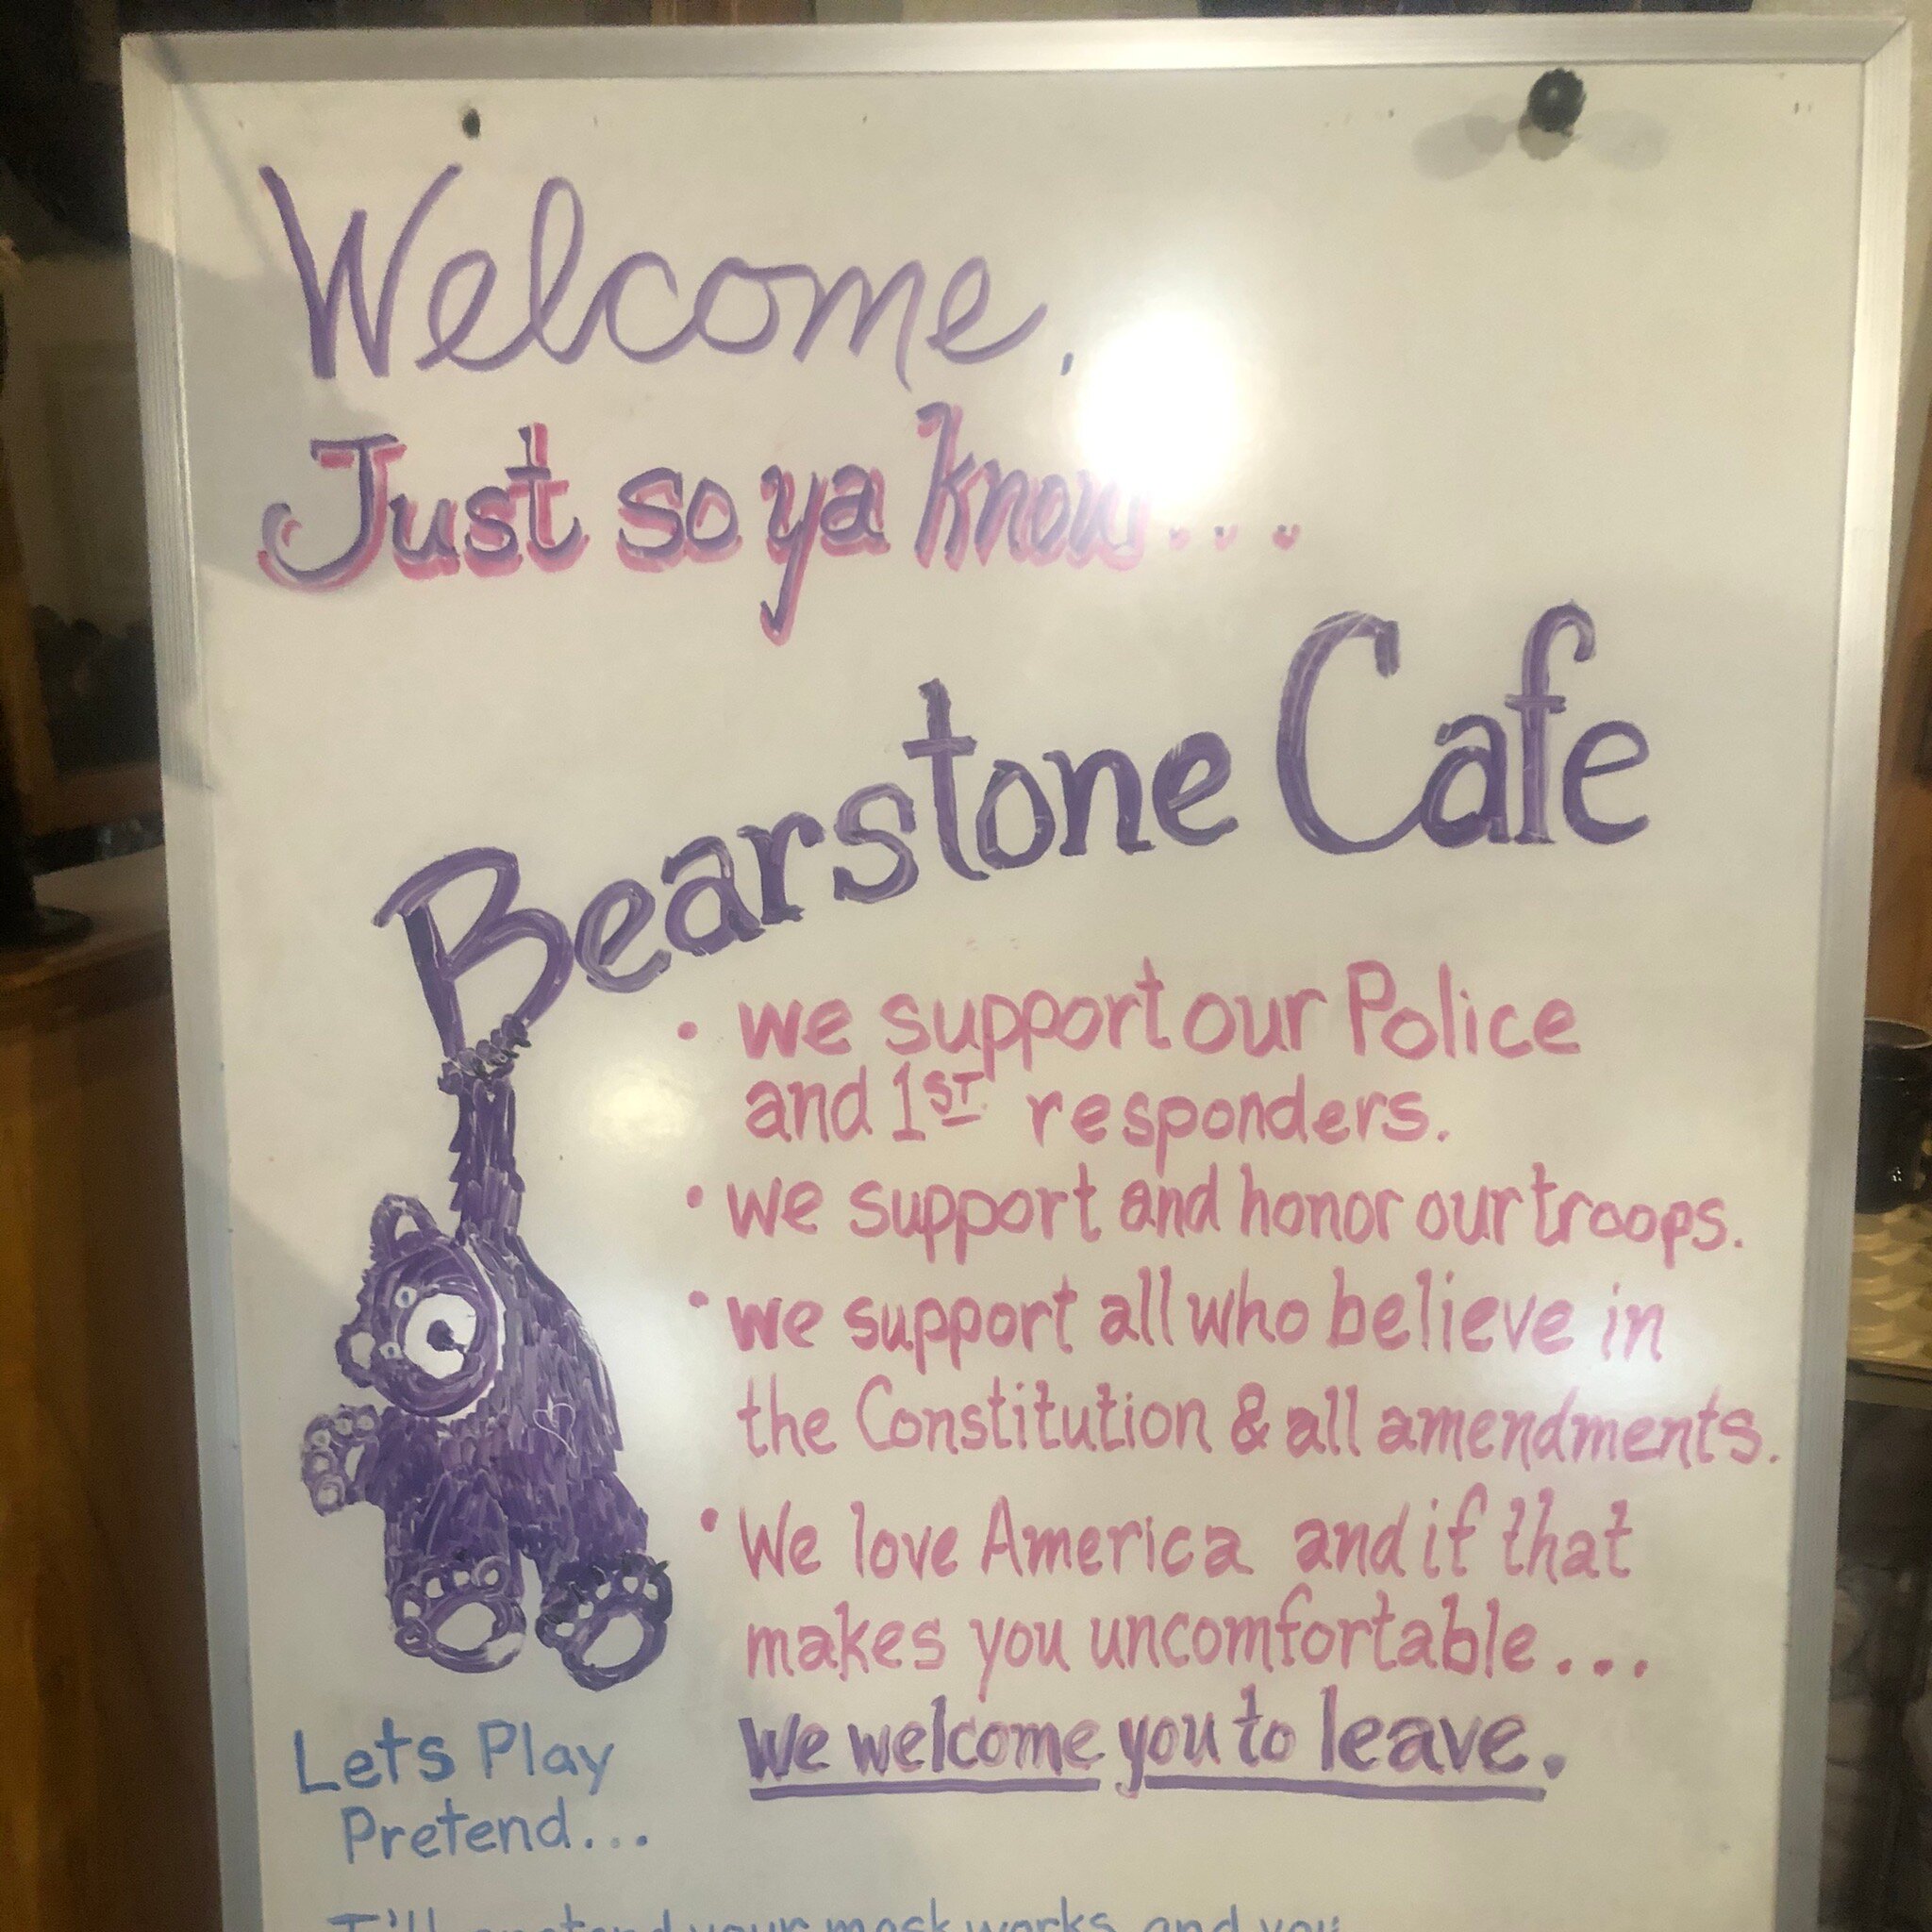 Welcome,
Just so ya know...
Bearstone Cafe
• we support our Police
and 1ST responders.
• we support and honor our troops.
• we support all who believe in
the Constitution & all amendments.
• We love America and if that
makes you uncomfortable...
We welcome you to leave.
Lets Play
Pretend...
I'll pretend your mask works and you